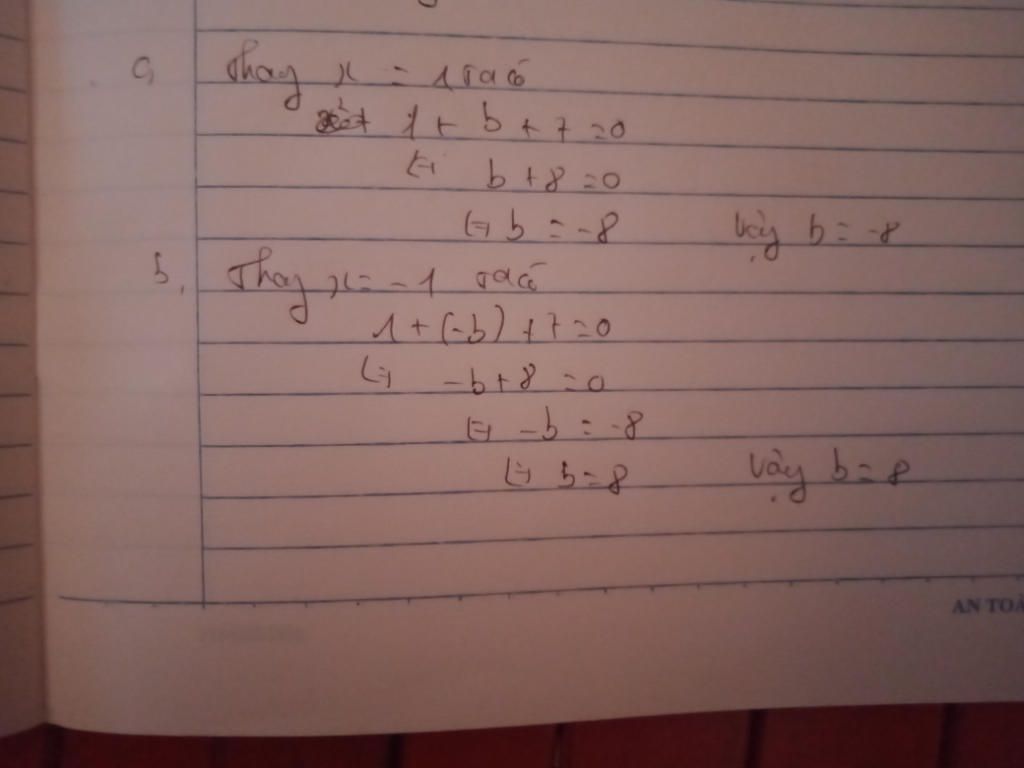 a, Thay x = 1 ta có
1 + b + 7 = 0
⇔ b + 8 = 0
⇔ b = -8 Vậy b = -8
b, Thay x = -1 ta có
1 + (-b) + 7 = 0
⇔ -b + 8 = 0
⇔ -b = -8
⇔ b = 8 Vậy b = 8
AN TOÀ